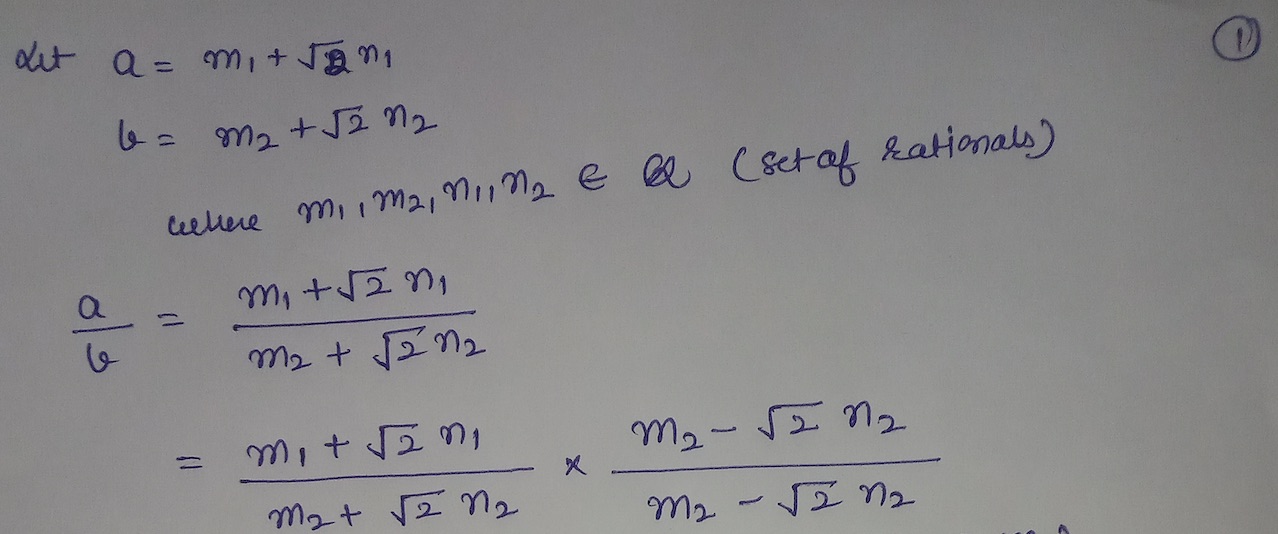 ①
Let a = m₁ + √2 n₁
b = m₂ + √2 n₂
where m₁, m₂, n₁, n₂ ∈ Q (set of rationals)
a/b = (m₁ + √2 n₁)/(m₂ + √2 n₂)
= (m₁ + √2 n₁)/(m₂ + √2 n₂) × (m₂ - √2 n₂)/(m₂ - √2 n₂)